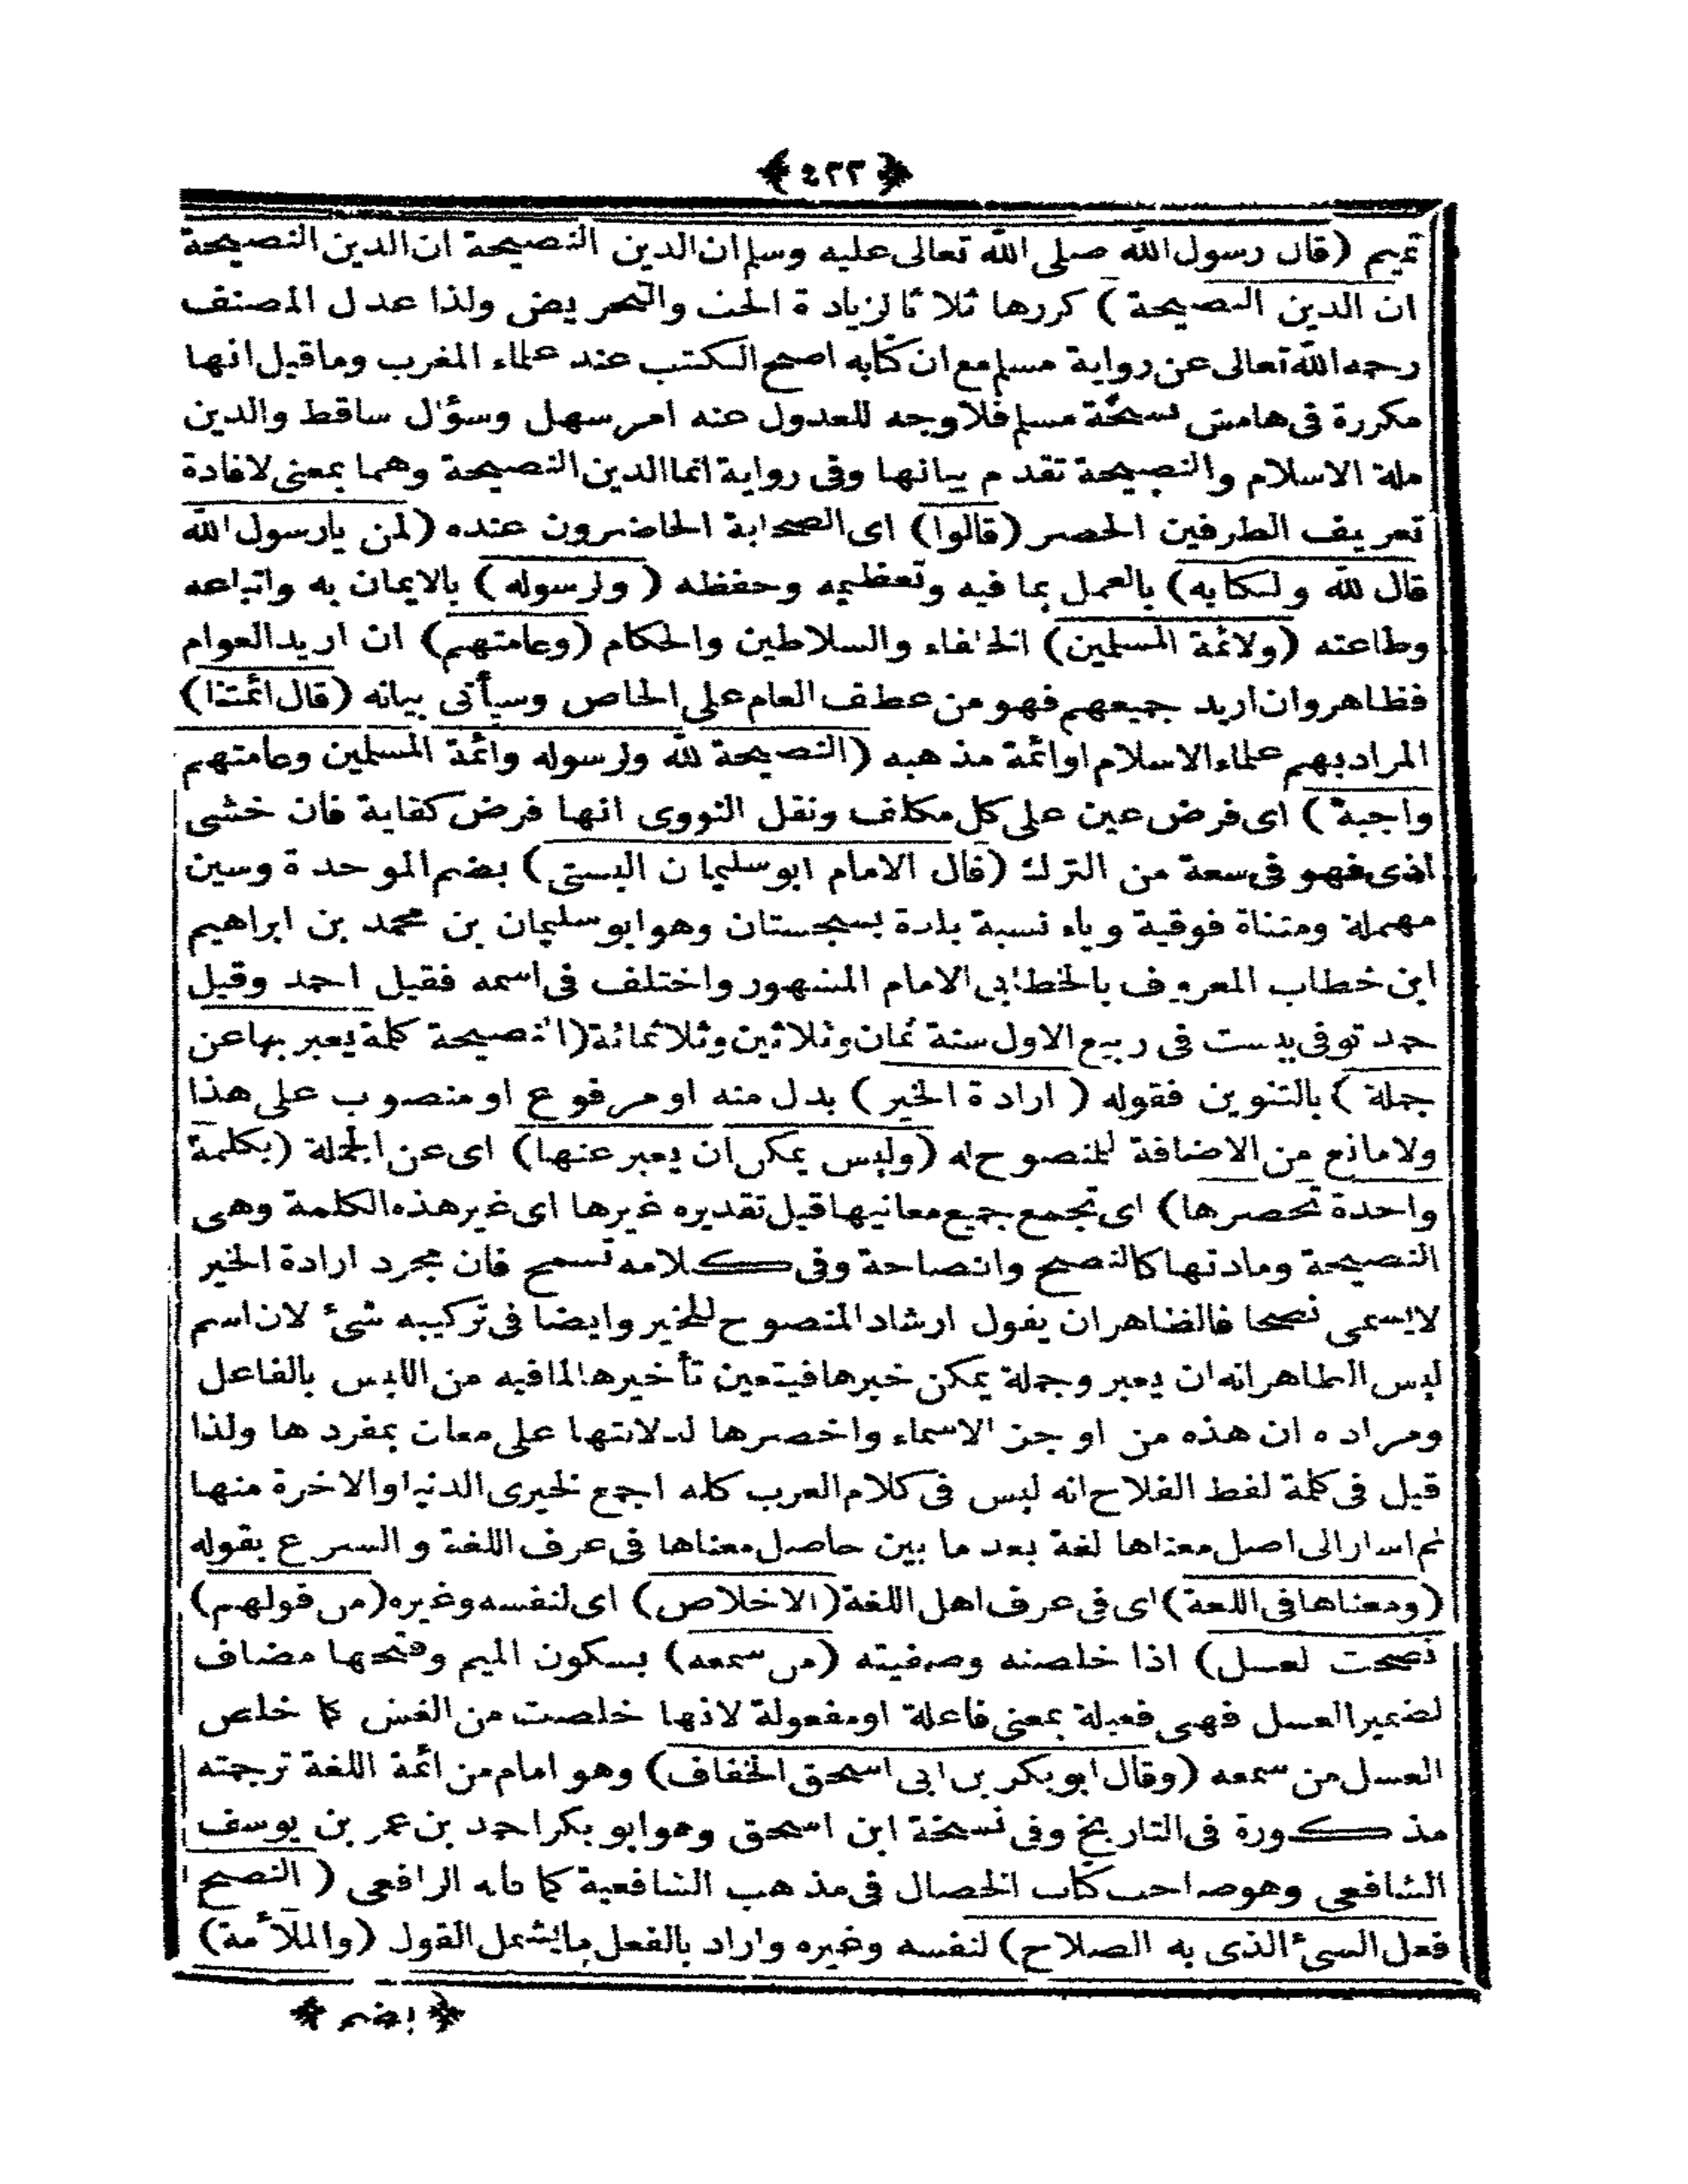 ﴿٤٢٣﴾
تميم (قال رسول الله صلى الله تعالى عليه وسلم ان الدين النصيحة ان الدين النصيحة
ان الدين النصيحة) كررها ثلاثا لزيادة الحث والتحريض ولذا عدل المصنف
رحمه الله تعالى عن رواية مسلم مع ان كتابه اصح الكتب عند علماء المغرب وما قيل انها
مكررة فى هامش نسخة مسلم فلا وجه للعدول عنه امر سهل وسؤال ساقط والدين
ملة الاسلام والنصيحة تقدم بيانها وفى رواية انما الدين النصيحة وهما بمعنى لافادة
تعريف الطرفين الحصر (قالوا) اى الصحابة الحاضرون عنده (لمن يارسول الله
قال لله ولكتابه) بالعمل بما فيه وتعظيمه وحفظه (ولرسوله) بالايمان به واتباعه
وطاعته (ولائمة المسلمين) الخلفاء والسلاطين والحكام (وعامتهم) ان اريد العوام
فظاهر وان اريد جميعهم فهو من عطف العام على الخاص وسيأتى بيانه (قال ائمتنا)
المراد بهم علماء الاسلام او ائمة مذهبه (النصيحة لله ولرسوله وائمة المسلمين وعامتهم
واجبة) اى فرض عين على كل مكلف ونقل النووى انها فرض كفاية فان خشى
اذى فهو فى سعة من الترك (قال الامام ابو سليمان البستى) بضم الموحدة وسين
مهملة ومثناة فوقية وياء نسبة بلدة بسجستان وهو ابو سليمان بن محمد بن ابراهيم
ابن خطاب المعروف بالخطابى الامام المشهور واختلف فى اسمه فقيل احمد وقيل
حمد توفى ببست فى ربيع الاول سنة ثمان وثلاثين وثلاثمائة (النصيحة كلمة يعبر بها عن
جملة) بالتنوين فقوله (ارادة الخير) بدل منه او مرفوع او منصوب على هذا
ولا مانع من الاضافة للمنصوح له (وليس يمكن ان يعبر عنها) اى عن الجملة (بكلمة
واحدة تحصرها) اى تجمع جميع معانيها قيل تقديره غيرها اى غير هذه الكلمة وهى
النصيحة ومادتها كالنصح والنصاحة وفى كلامه تسمح فان مجرد ارادة الخير
لايسمى نصحا فالظاهر ان يقول ارشاد المنصوح للخير وايضا فى تركيبه شئ لان اسم
ليس الظاهر انه ان يعبر وجملة يمكن خبرها فيتعين تأخيرها لما فيه من اللبس بالفاعل
ومراده ان هذه من اوجز الاسماء واخصرها لدلالتها على معان بمفردها ولذا
قيل فى كلمة لفظ الفلاح انه ليس فى كلام العرب كلمة اجمع لخيرى الدنيا والاخرة منها
ثم اشار الى اصل معناها لغة بعد ما بين حاصل معناها فى عرف اللغة والشرع بقوله
(ومعناها فى اللغة) اى فى عرف اهل اللغة (الاخلاص) اى لنفسه وغيره (من قولهم)
نصحت العسل) اذا خلصته وصفيته (من شمعه) بسكون الميم وفتحها مضاف
لضمير العسل فهى فعيلة بمعنى فاعلة او مفعولة لانها خلصت من الغش كما خلص
العسل من شمعه (وقال ابو بكر بن ابى اسحق الخفاف) وهو امام من ائمة اللغة ترجمته
مذكورة فى التاريخ وفى نسخة ابن اسحق وهو ابو بكر احمد بن عمر بن يوسف
الشافعى وهو صاحب كتاب الخصال فى مذهب الشافعية كما قاله الرافعى (النصح
فعل الشئ الذى به الصلاح) لنفسه وغيره واراد بالفعل ما يشمل القول (والملأمة)
﴿بضم﴾